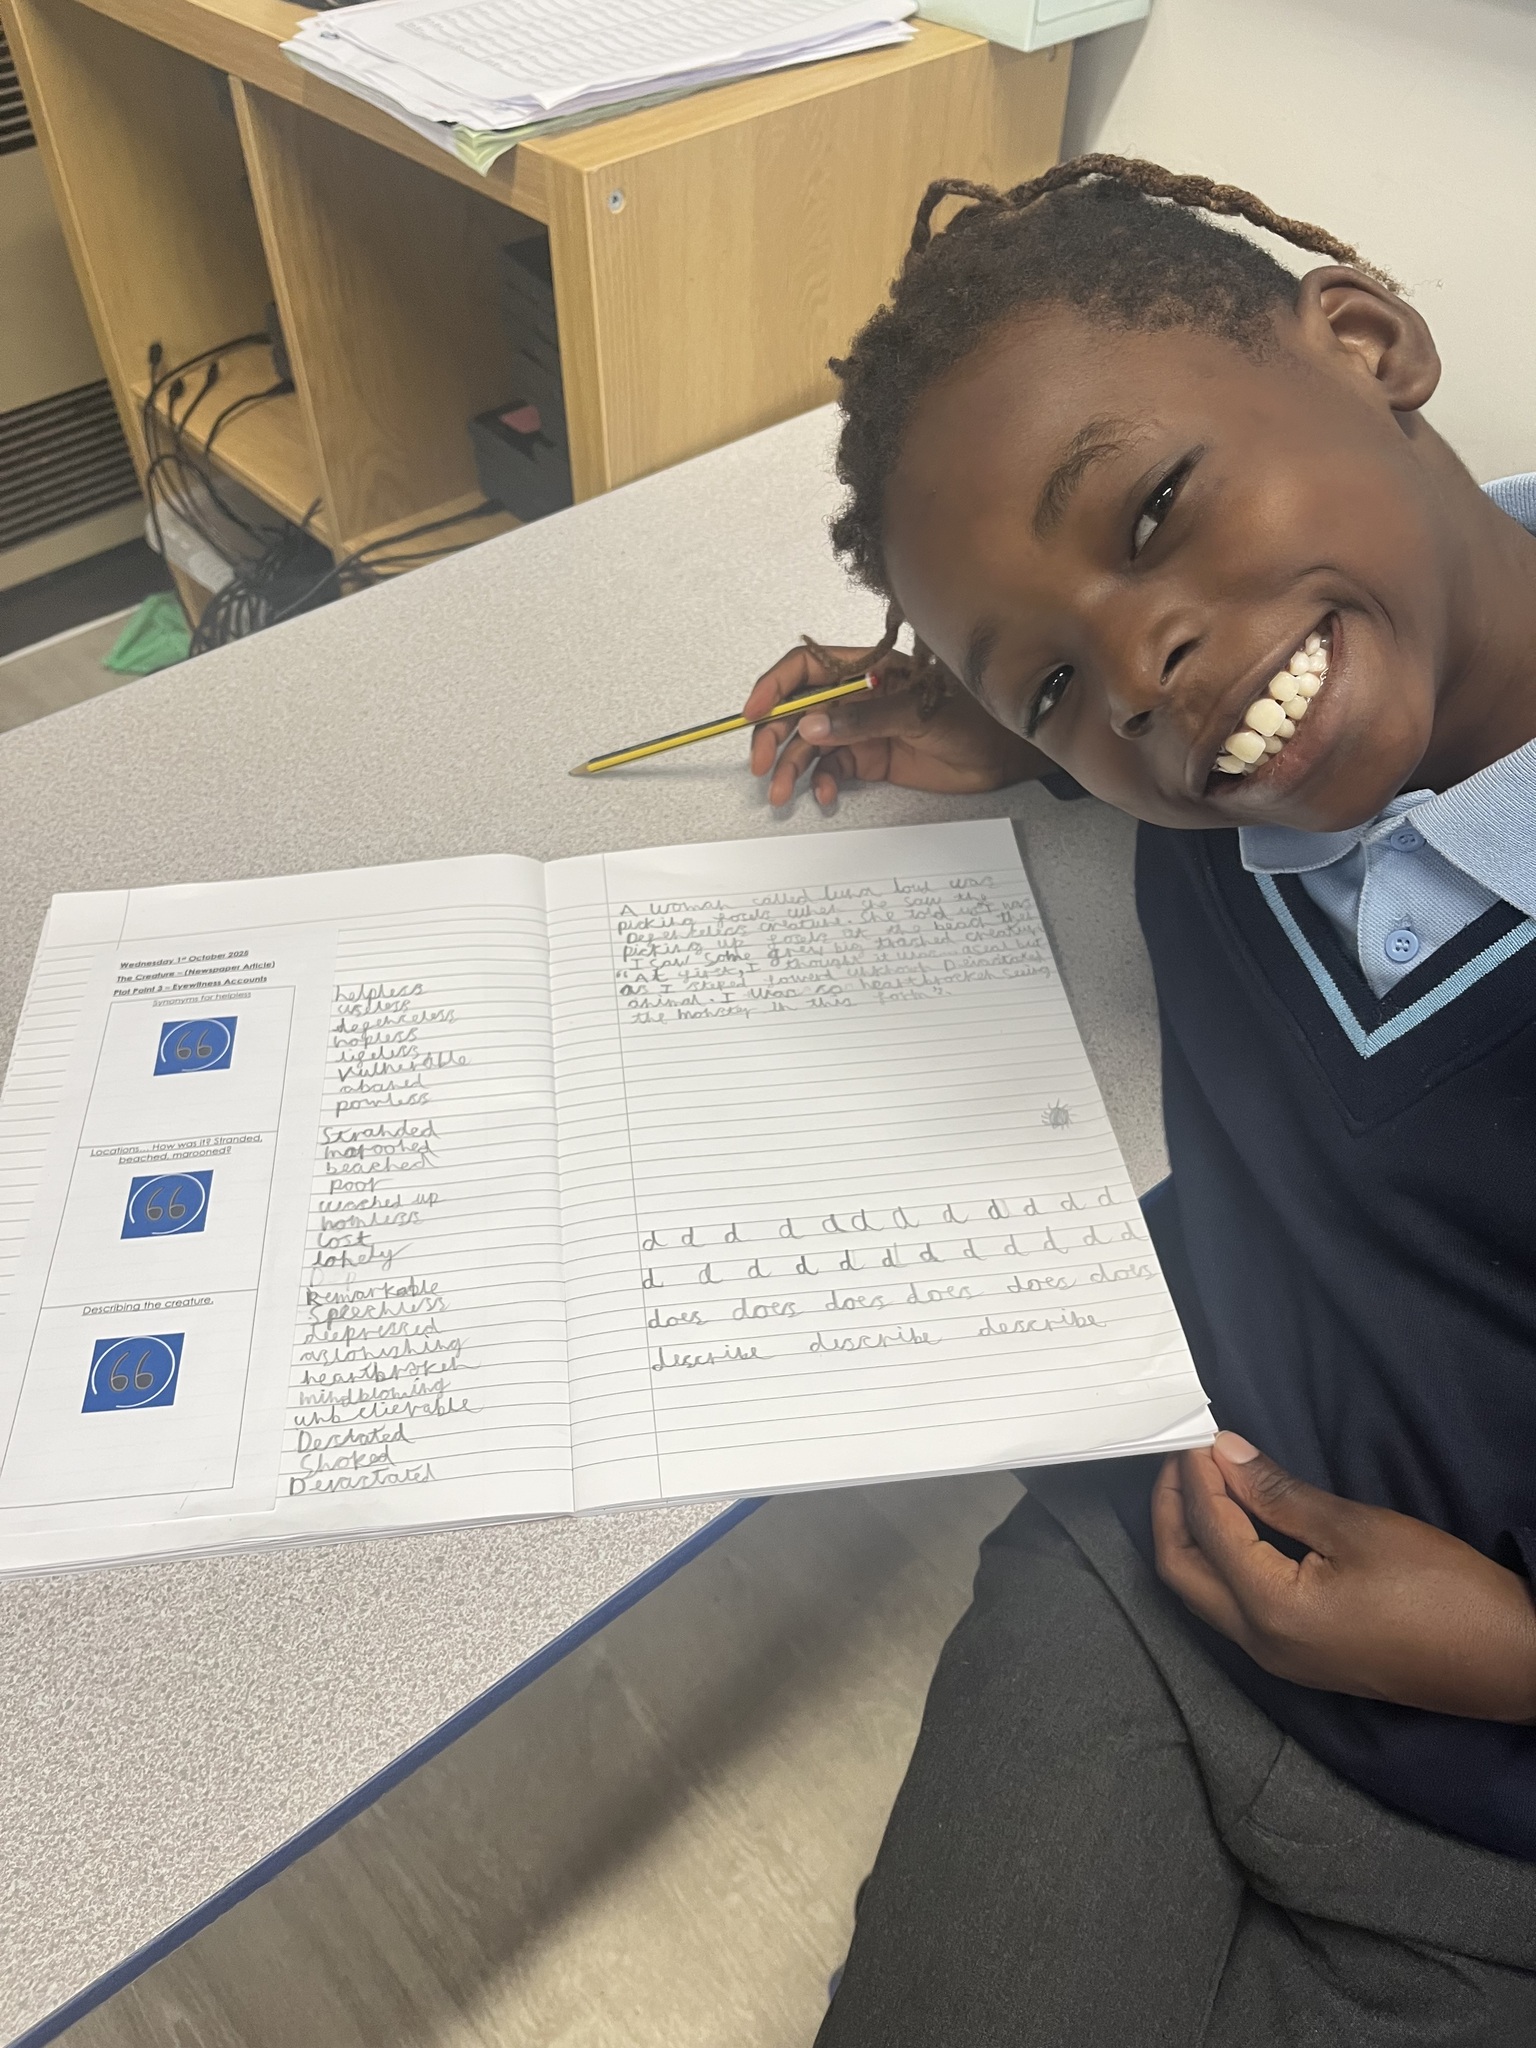 Wednesday 1st October 2025
The Creature – (Newspaper Article)
Plot Point 3 – Eyewitness Accounts
Synonyms for helpless
66
Locations... How was it? Stranded,
beached, marooned?
66
Describing the creature.
66
helpless
useless
depenceless
hopless
lifeless
Vulnerable
abaned
powless
Stranded
marooned
beached
poor
washed up
homless
Lost
lonely
Remarkable
Speechless
deepressed
astonishing
heartbroken
mindblowing
unbelievable
Desolated
Shoked
Devastated
A woman called luna loud was
picking fossils when she saw the
Depenceless creature. She told us I was
picking up fossils at the beach then
I saw some grey big trashed creature
"At first, I thought it was a seal but
as I steped toward unknown Devastated
animal. I was so heartbroken seeing
the monster in this form".
d d d d d d d d d d d d
d d d d d d d d d d d d
does does does does does does
describe describe describe